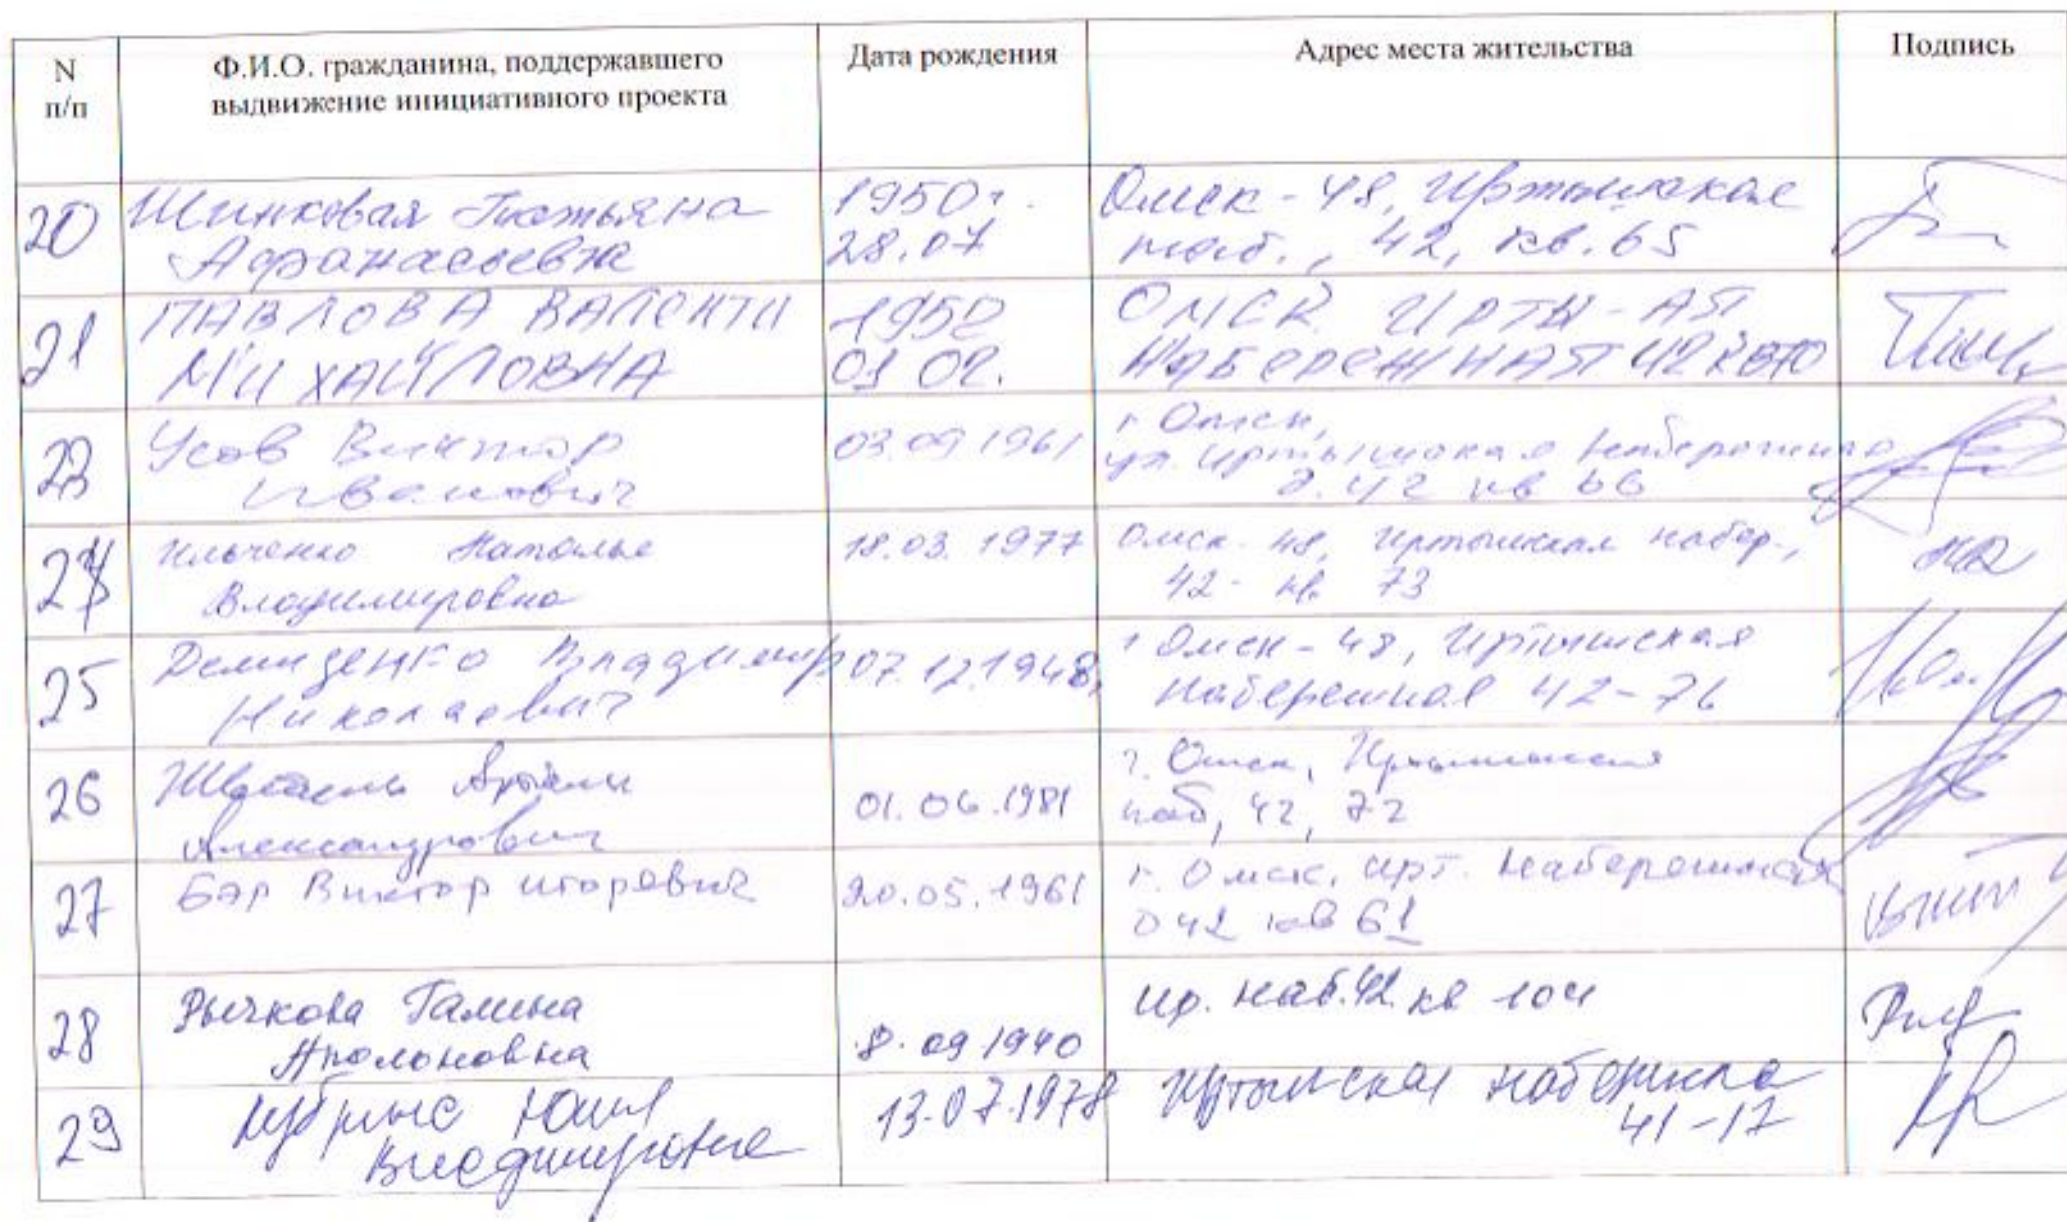 N п/п
Ф.И.О. гражданина, поддержавшего
выдвижение инициативного проекта
Дата рождения
Адрес места жительства
Подпись
20
Шинковая Татьяна
Афанасьевна
1950г.
28.07
Омск - 48, Иртышская
наб., 42, кв. 65
21
ПАВЛОВА ВАЛЕНТИ
МИХАЙЛОВНА
1950
01 02.
ОМСК ИРТЫ-АЯ
НАБЕРЕЖНАЯ 42 КВ70
Усов Виктор
Иванович
03.09 1961
г Омск,
ул. Иртышская Набережная
д. 42 кв 66
Ильченко Наталья
Владимировна
18.03. 1977
Омск-48, Иртышская набер.,
42- кв 73
25
Демиденко Владимир
Николаевич
07.12.1948
г Омск-48, Иртышская
набережная 42-76
26
Артём
Александрович
01.06.1981
г. Омск, Иртышская
наб, 42, 72
27
Бэр Виктор игоревич
20.05.1961
г. Омск, ирт. Набережная
д 42 кв 61
28
Рычкова Галина
Аполоновна
8.09 1940
ир. наб. 42 кв 104
29
Юлия
Владимировна
13.07.1978
Иртышская набережная
41-17